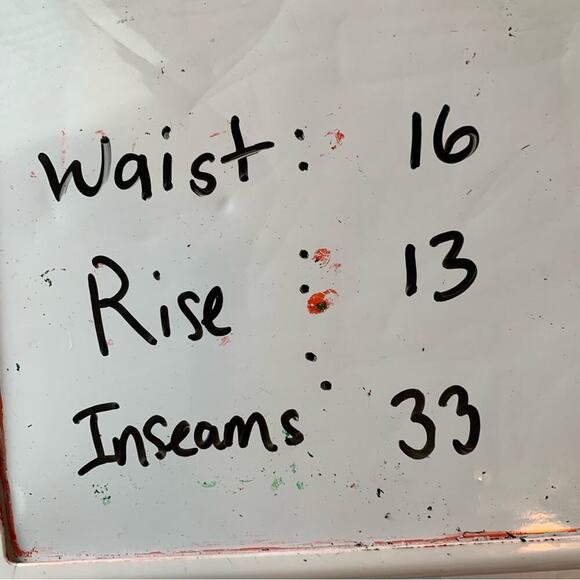 Waist: 16
Rise : 13
Inseams : 33